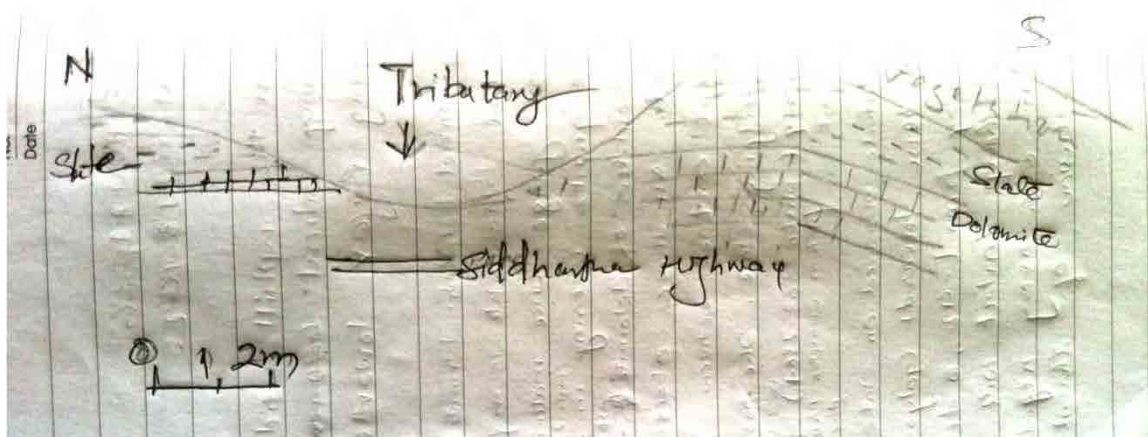 N
S
Tributary
Vegetation
Date
Slate
Slate
Dolomite
Siddhartha Highway
0 1 2m